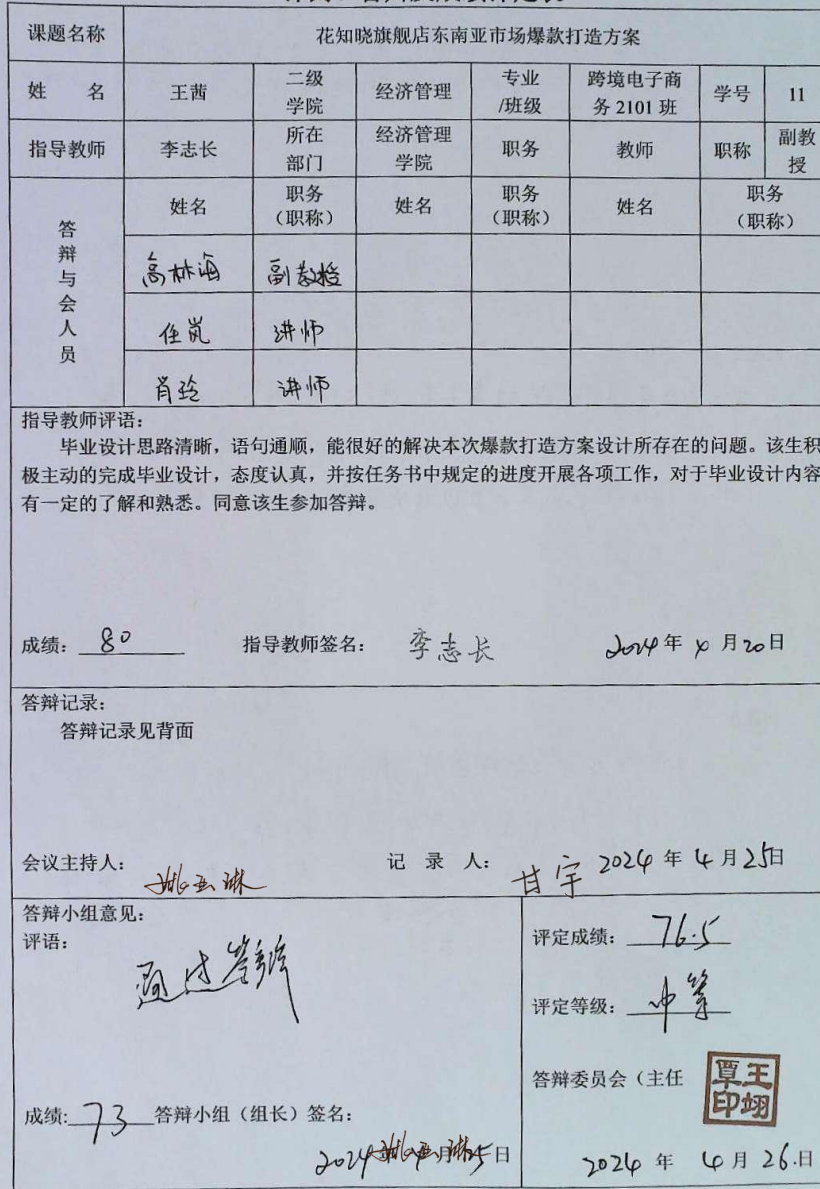 课题名称 花知晓旗舰店东南亚市场爆款打造方案
姓 名 王茜 二级学院 经济管理 专业/班级 跨境电子商务2101班 学号 11
指导教师 李志长 所在部门 经济管理学院 职务 教师 职称 副教授
答辩与会人员
姓名 职务（职称） 姓名 职务（职称） 姓名 职务（职称）
高林海 副教授
任岚 讲师
肖玲 讲师
指导教师评语：
毕业设计思路清晰，语句通顺，能很好的解决本次爆款打造方案设计所存在的问题。该生积
极主动的完成毕业设计，态度认真，并按任务书中规定的进度开展各项工作，对于毕业设计内容
有一定的了解和熟悉。同意该生参加答辩。
成绩：80 指导教师签名：李志长 2024年4月20日
答辩记录：
答辩记录见背面
会议主持人：姚亚琳 记 录 人：甘宇 2024年4月25日
答辩小组意见：
评语：
通过答辩
成绩：73 答辩小组（组长）签名：
姚亚琳
2024 月25日
评定成绩：76.5
评定等级：中等
答辩委员会（主任
王翊覃印
2024年4月26日